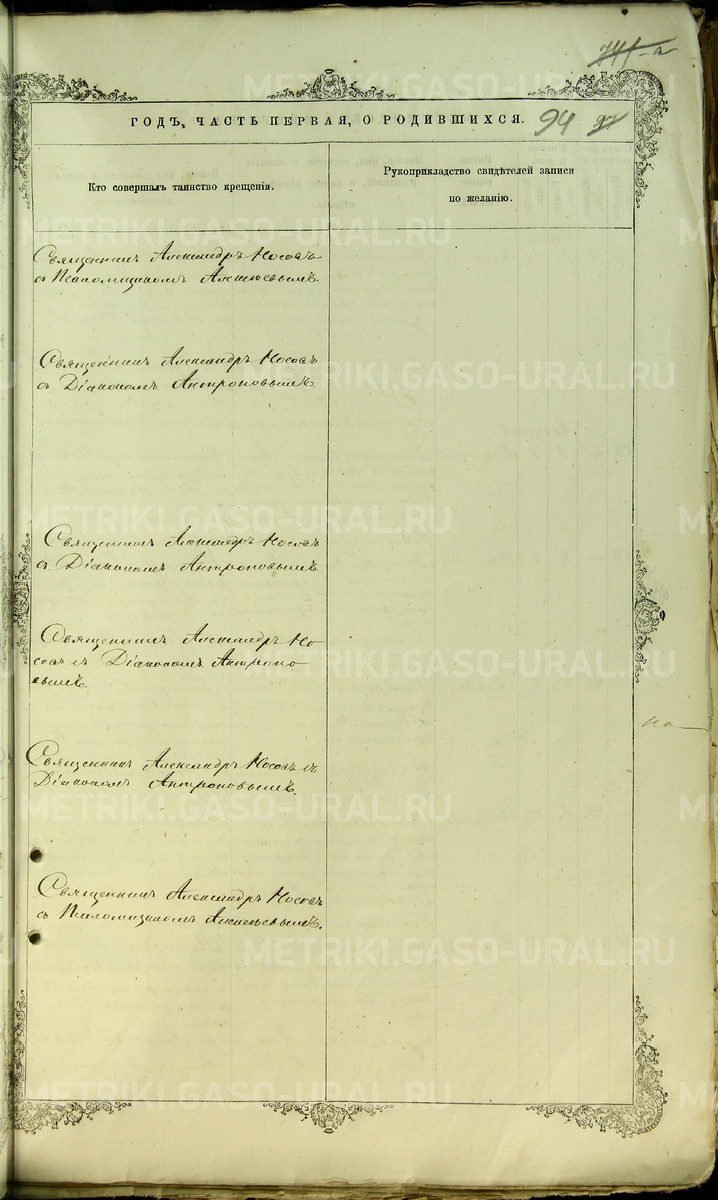 741-а
ГОДЪ, ЧАСТЬ ПЕРВАЯ, О РОДИВШИХСЯ. 94 97
Кто совершалъ таинство крещенія.
Рукоприкладство свидѣтелей записи
по желанію.
Священникъ Александръ Носовъ
съ Псаломщикомъ Алексѣевымъ.
Священникъ Александръ Носовъ
съ Діакономъ Антроповымъ.
Священникъ Александръ Носовъ
съ Діакономъ Антроповымъ
Священникъ Александръ Но
совъ съ Діакономъ Антропо
вымъ.
Священникъ Александръ Носовъ съ
Діакономъ Антроповымъ.
Священникъ Александръ Носовъ
съ Псаломщикомъ Алексѣевымъ.
METRIKI.GASO-URAL.RU